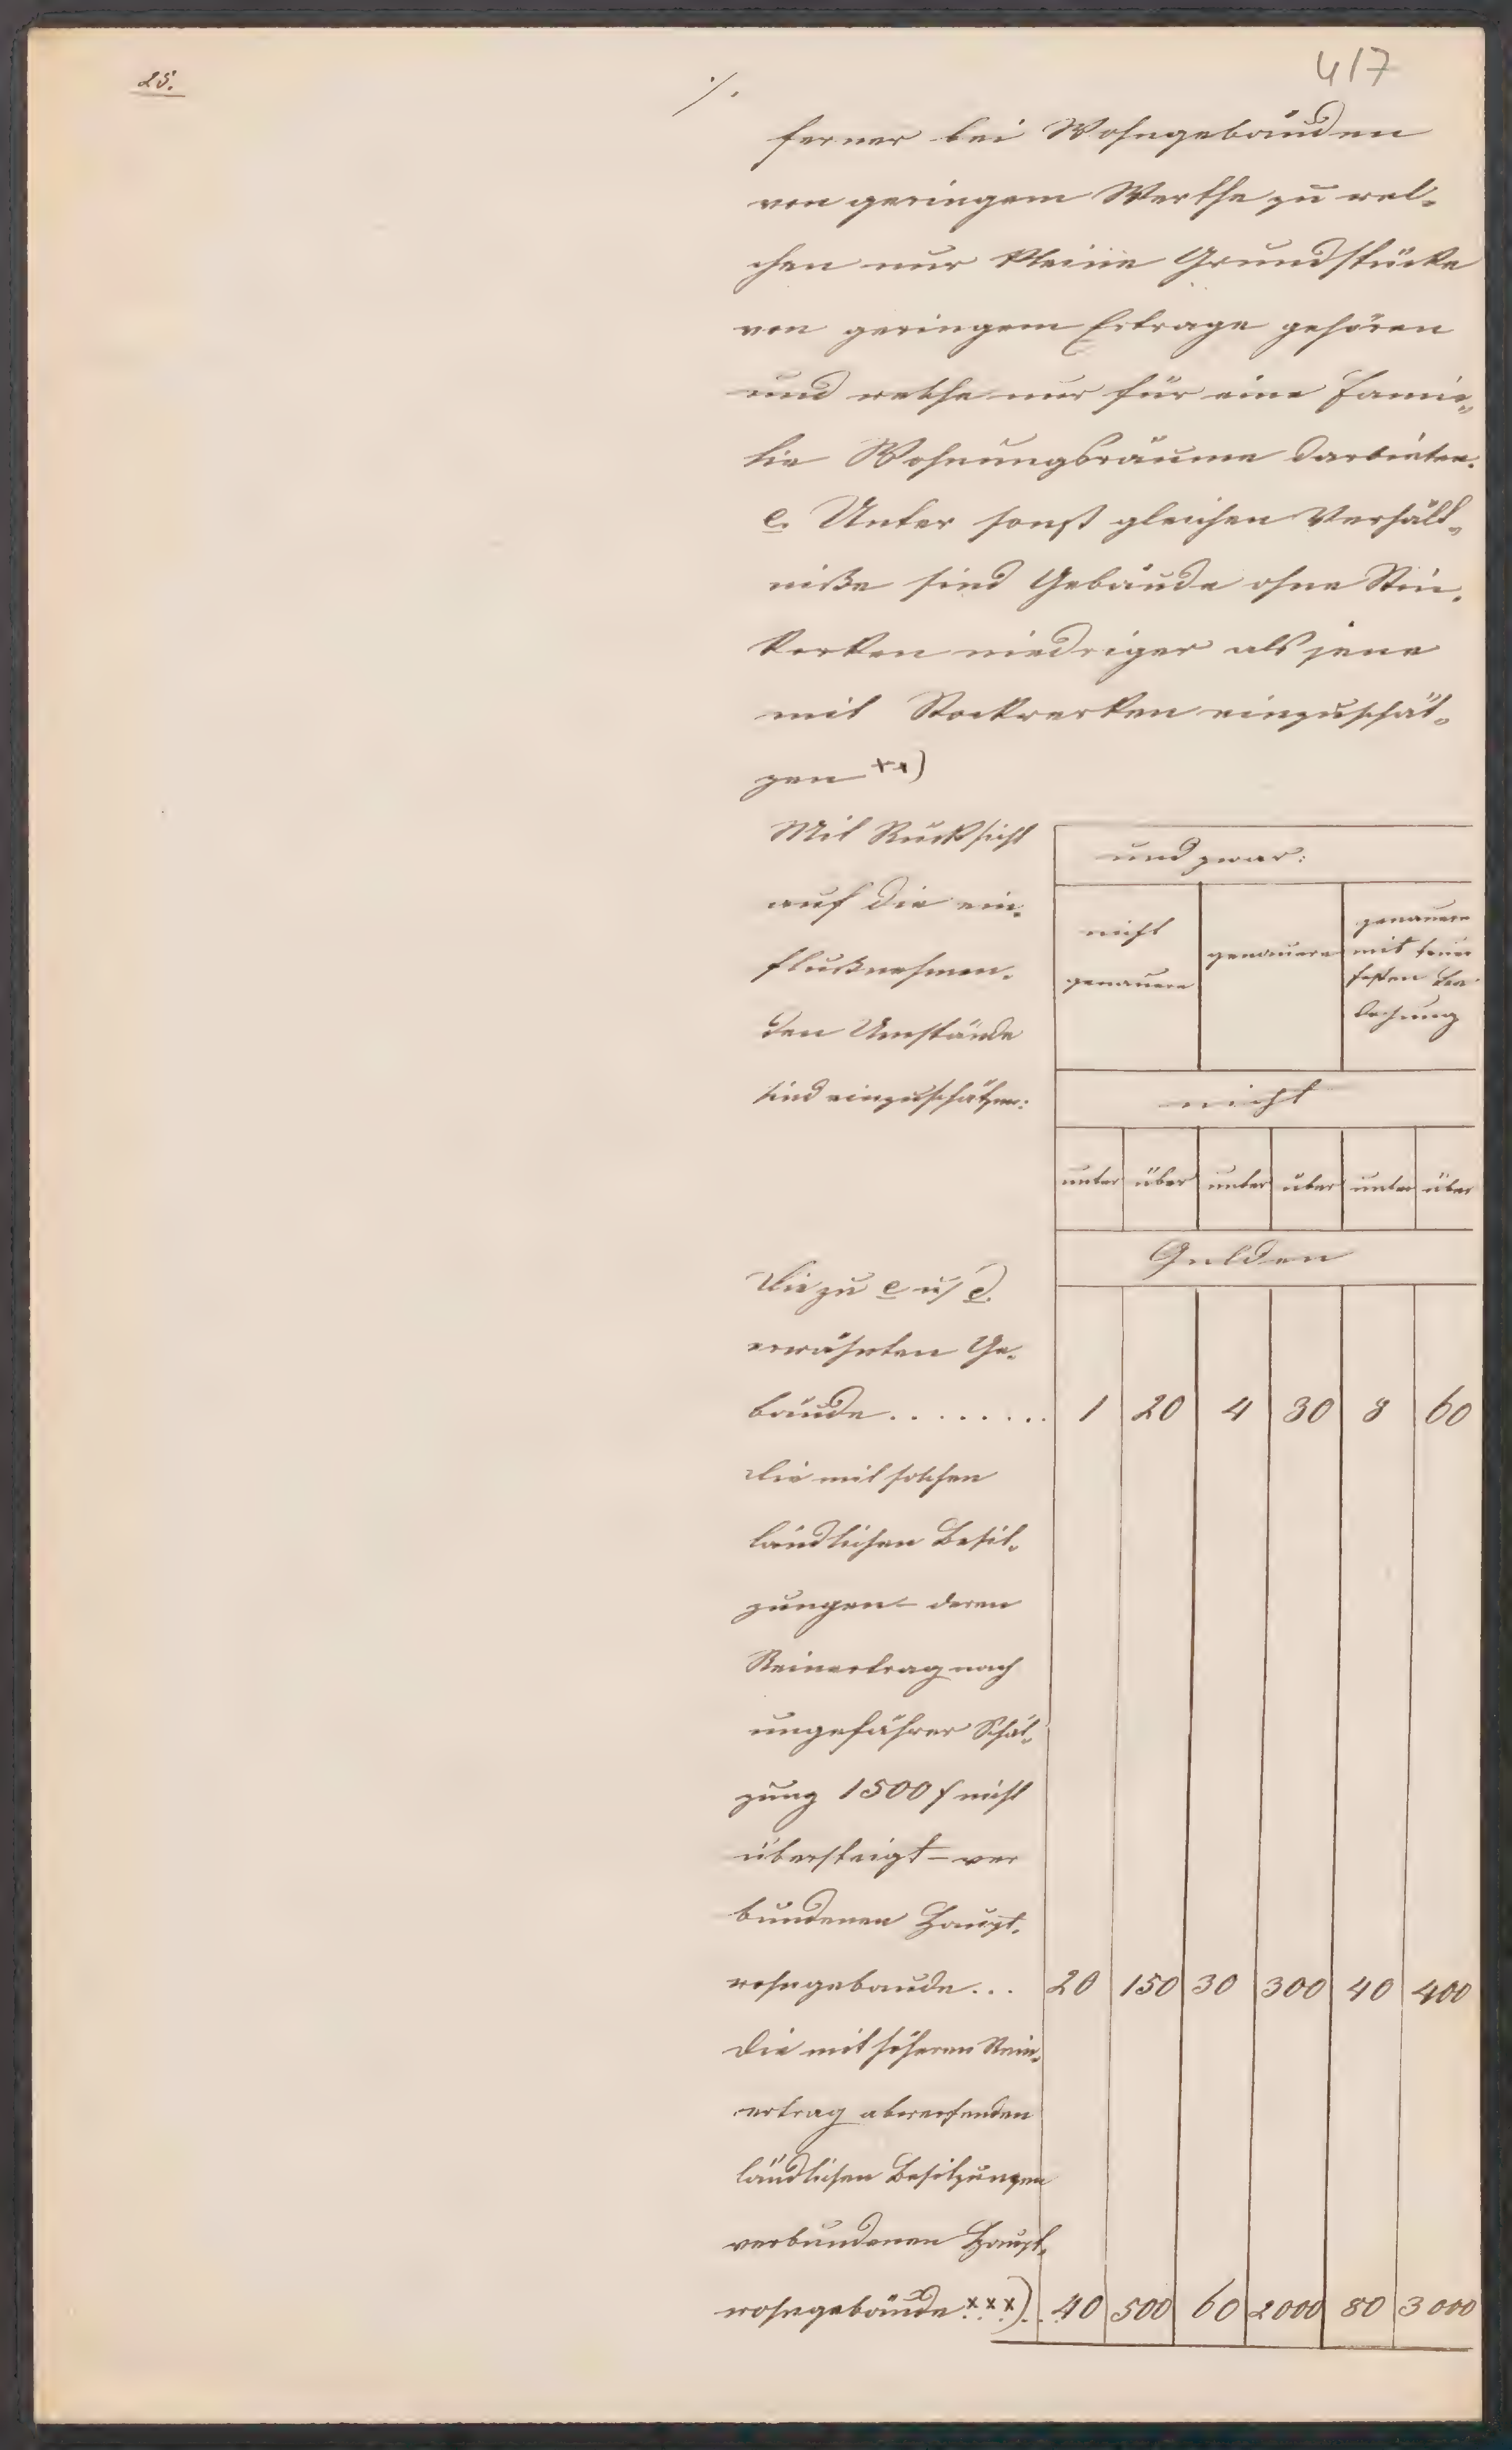 25.
417
./.
ferner bei Wohngebäuden
von geringem Werthe zu wel-
chen nur kleine Grundstücke
von geringem Ertrage gehören
und welche nur für eine Fami-
lie Wohnungsräume darbieten.
e. Unter sonst gleichen Verhält-
niße sind Gebäude ohne
niedriger als jene
mit Stockwerken einzuschät-
zen xx)
Mit Rücksicht
auf die ein-
flußnehmen-
den Umstände
sind einzuschätzen:
und zwar:
nicht
gemauere
gemauere
gemauere
mit feuer
festen Be-
dachung
nicht
unter über unter über unter über
Gulden
Die zu c u/ d
erwähnten Ge-
bäude......... 1 20 4 30 8 60
Die mit solchen
ländlichen Besit-
zungen – deren
Reinertrag nach
ungefährer Schät-
zung 1500 f nicht
übersteigt – ver
bundenen Haupt-
wohngebaude... 20 150 30 300 40 400
Die mit höheren Rein-
ertrag abwerfenden
ländlichen Besitzungen
verbundenen Haupt-
wohngebäude xxx).. 40 500 60 2000 80 3000